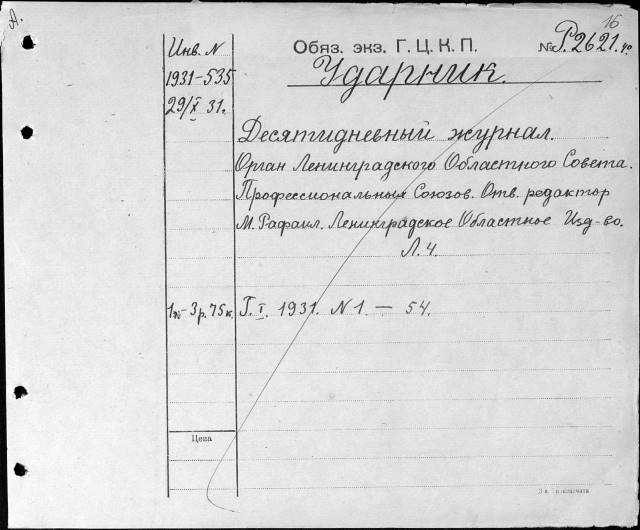 А.
16
Инв. N
Обяз. экз. Г. Ц. К. П.
№ Р2621. 4°
1931-535
Ударник.
29/X 31 г.
Десятидневный журнал.
Орган Ленинградского Областного Совета.
Профессиональных Союзов. Отв. редактор
М. Рафаил. Ленинградское Областное Изд-во.
Л. 4.
3 р. 75 к.
Г. I. 1931. N 1. — 54.
Цена